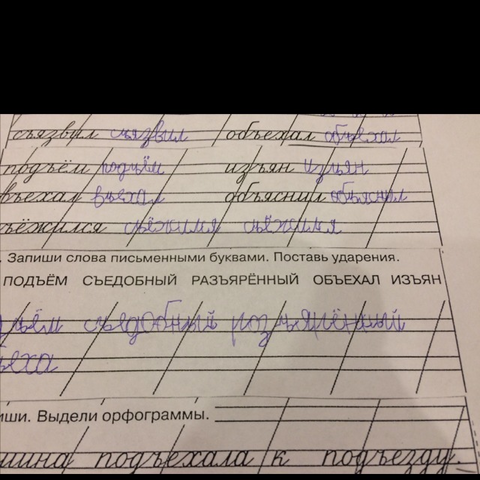 съязвил съязвил объехал объехал
подъём подъём изъян изъян
въехал въехал объяснил объяснил
ёжился съёжимя съёжимя
. Запиши слова письменными буквами. Поставь ударения.
ПОДЪЁМ СЪЕДОБНЫЙ РАЗЪЯРЁННЫЙ ОБЪЕХАЛ ИЗЪЯН
ъём съедобный розъярённый
ъеха
иши. Выдели орфограммы.
шина подъехала к подъезду